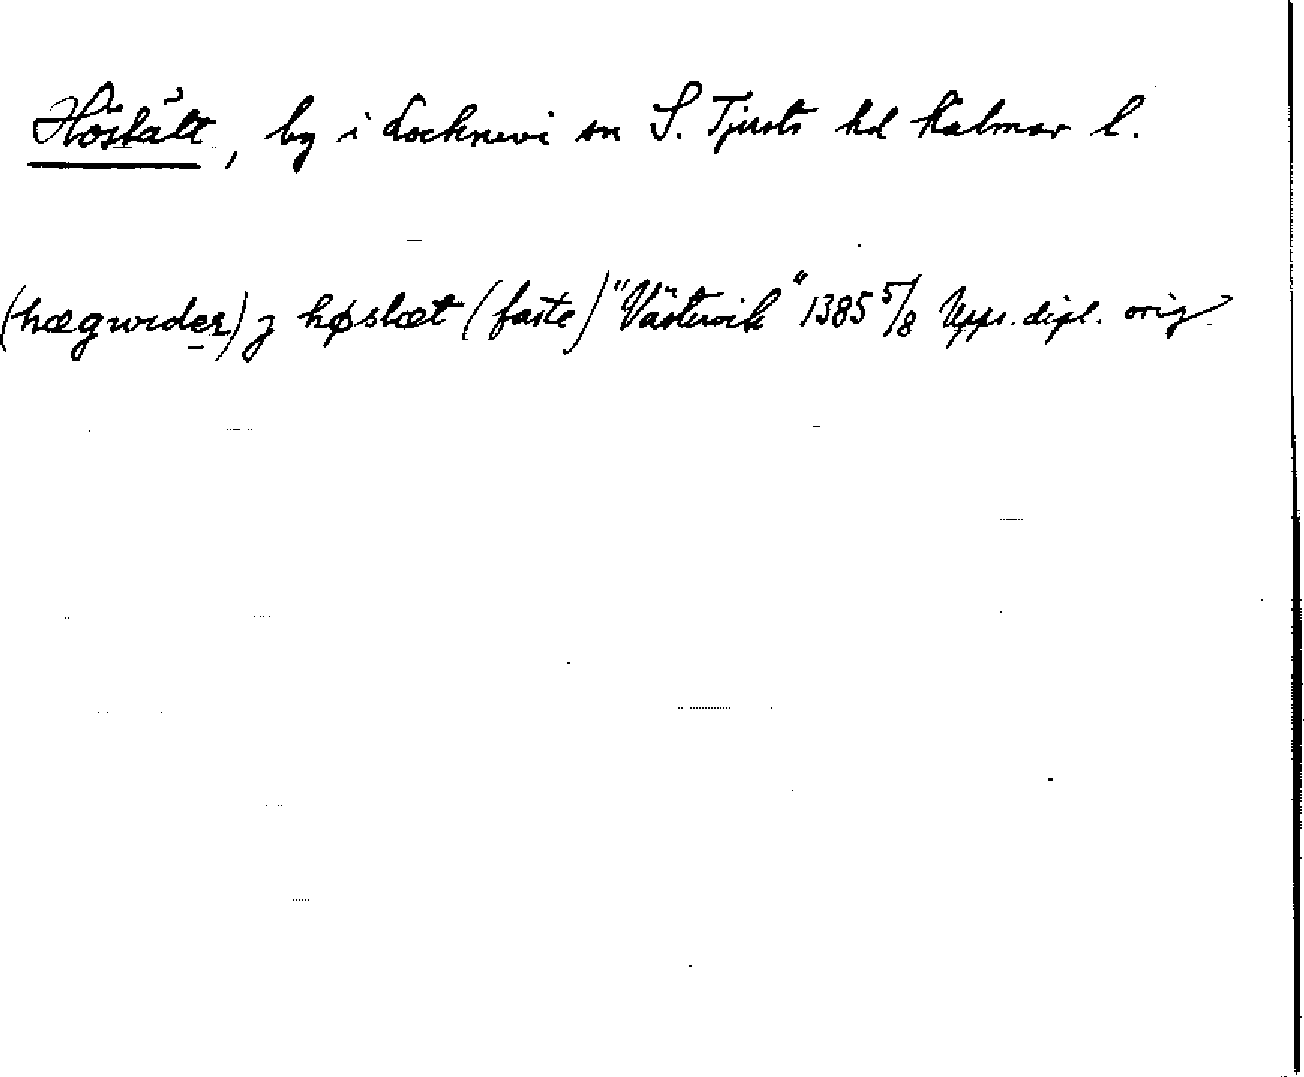 Höshålt, by i Locknevi sn S. Tjusts hd Kalmar l.
(hægwider) j høslæt (faste) "Västervik" 1385 5/8 Upps. dipl. orig.